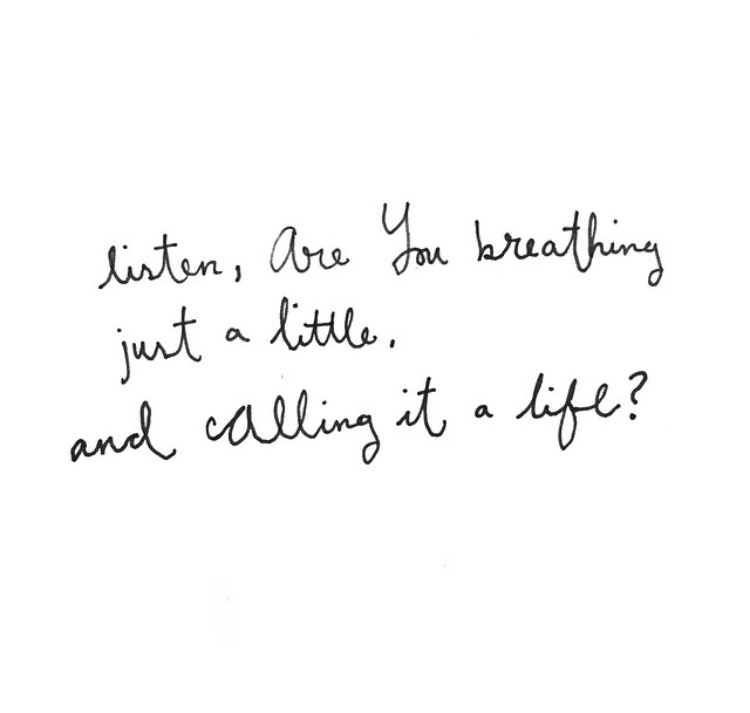 listen, Are You breathing
just a little,
and calling it a life?